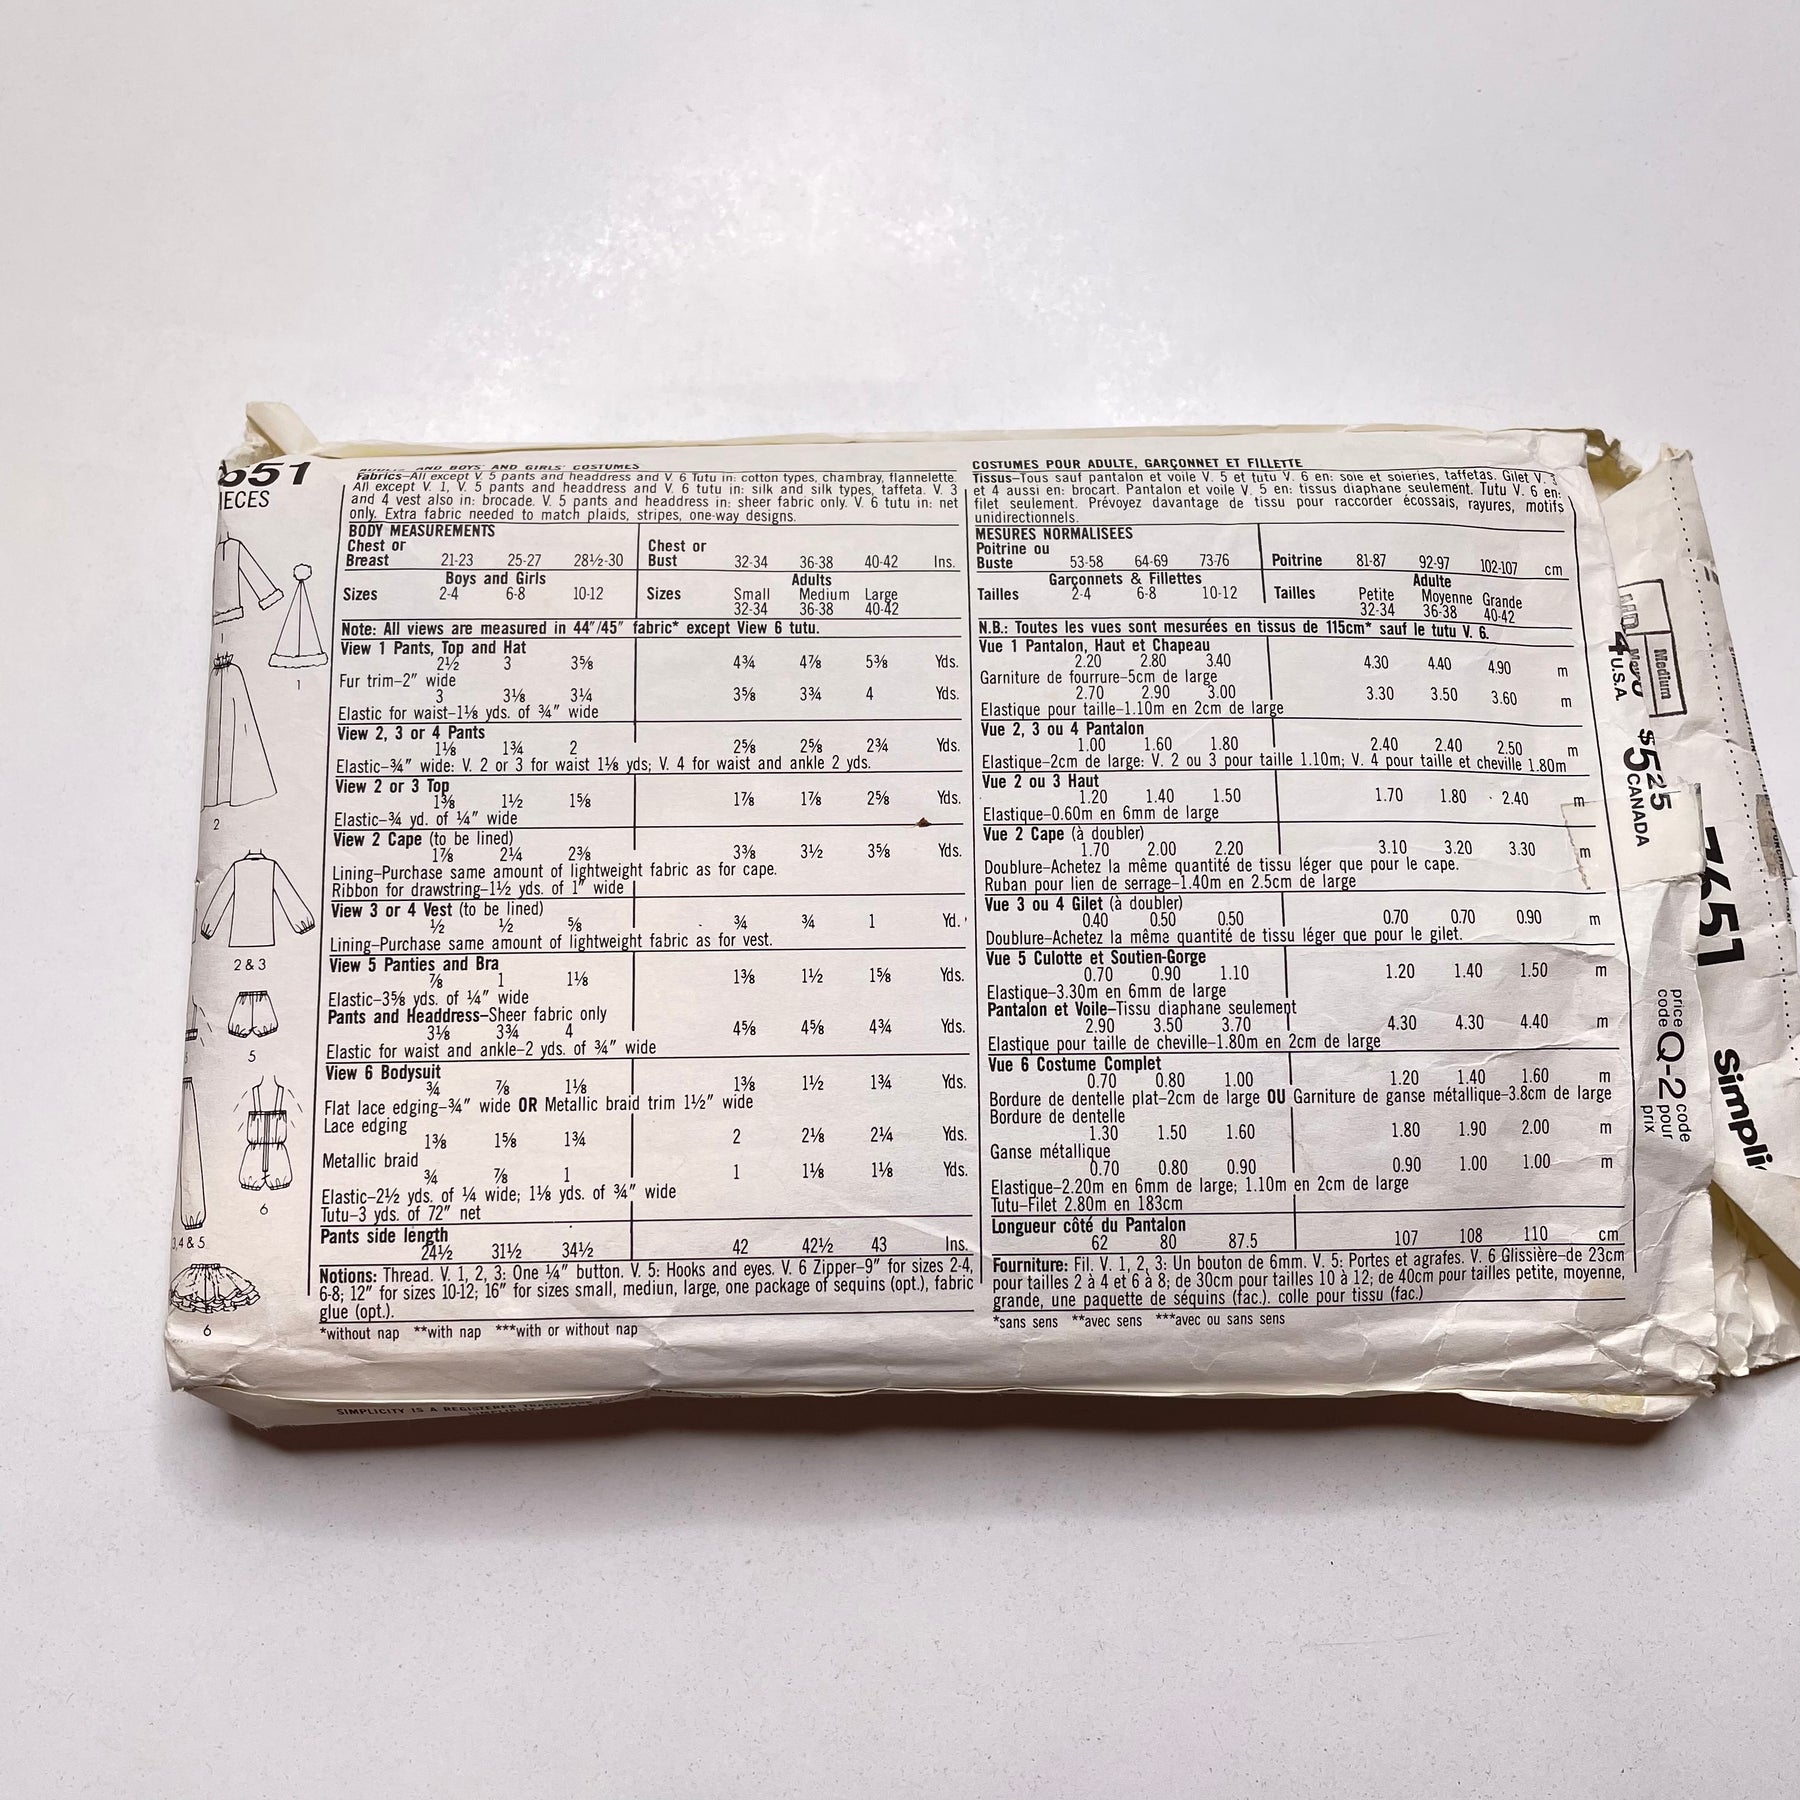 651
IECES
1
1
2
2 & 3
5
6
3,4 & 5
6
AND BOYS' AND GIRLS' COSTUMES
Fabrics–All except V. 5 pants and headdress and V. 6 Tutu in: cotton types, chambray, flannelette.
All except V. 1, V. 5 pants and headdress and V. 6 tutu in: silk and silk types, taffeta. V. 3
and 4 vest also in: brocade. V. 5 pants and headdress in: sheer fabric only. V. 6 tutu in: net
only. Extra fabric needed to match plaids, stripes, one-way designs.
BODY MEASUREMENTS
Chest or Chest or
Breast 21-23 25-27 28½-30 Bust 32-34 36-38 40-42 Ins.
Boys and Girls Adults
Sizes 2-4 6-8 10-12 Sizes Small Medium Large
32-34 36-38 40-42
Note: All views are measured in 44"/45" fabric* except View 6 tutu.
View 1 Pants, Top and Hat
2½ 3 3⅝ 4¾ 4⅞ 5⅜ Yds.
Fur trim–2" wide
3 3⅛ 3¼ 3⅝ 3¾ 4 Yds.
Elastic for waist–1⅛ yds. of ¾" wide
View 2, 3 or 4 Pants
1⅛ 1¾ 2 2⅝ 2⅝ 2¾ Yds.
Elastic–¾" wide: V. 2 or 3 for waist 1⅛ yds; V. 4 for waist and ankle 2 yds.
View 2 or 3 Top
1⅜ 1½ 1⅝ 1⅞ 1⅞ 2⅝ Yds.
Elastic–¾ yd. of ¼" wide
View 2 Cape (to be lined)
1⅞ 2¼ 2⅜ 3⅜ 3½ 3⅝ Yds.
Lining–Purchase same amount of lightweight fabric as for cape.
Ribbon for drawstring–1½ yds. of 1" wide
View 3 or 4 Vest (to be lined)
½ ½ ⅝ ¾ ¾ 1 Yd.
Lining–Purchase same amount of lightweight fabric as for vest.
View 5 Panties and Bra
⅞ 1 1⅛ 1⅜ 1½ 1⅝ Yds.
Elastic–3⅝ yds. of ¼" wide
Pants and Headdress–Sheer fabric only
3⅛ 3¾ 4 4⅝ 4⅝ 4¾ Yds.
Elastic for waist and ankle–2 yds. of ¾" wide
View 6 Bodysuit
¾ ⅞ 1⅛ 1⅜ 1½ 1¾ Yds.
Flat lace edging–¾" wide OR Metallic braid trim 1½" wide
Lace edging
1⅜ 1⅝ 1¾ 2 2⅛ 2¼ Yds.
Metallic braid
¾ ⅞ 1 1 1⅛ 1⅛ Yds.
Elastic–2½ yds. of ¼ wide; 1⅛ yds. of ¾" wide
Tutu–3 yds. of 72" net
Pants side length
24½ 31½ 34½ 42 42½ 43 Ins.
Notions: Thread. V. 1, 2, 3: One ¼" button. V. 5: Hooks and eyes. V. 6 Zipper–9" for sizes 2-4,
6-8; 12" for sizes 10-12; 16" for sizes small, mediun, large, one package of sequins (opt.), fabric
glue (opt.).
*without nap **with nap ***with or without nap
SIMPLICITY IS A REGISTERED TRADEMARK
COSTUMES POUR ADULTE, GARÇONNET ET FILLETTE
Tissus–Tous sauf pantalon et voile V. 5 et tutu V. 6 en: soie et soieries, taffetas. Gilet V. 3
et 4 aussi en: brocart. Pantalon et voile V. 5 en: tissus diaphane seulement. Tutu V. 6 en:
filet seulement. Prévoyez davantage de tissu pour raccorder écossais, rayures, motifs
unidirectionnels.
MESURES NORMALISEES
Poitrine ou
Buste 53-58 64-69 73-76 Poitrine 81-87 92-97 102-107 cm
Garçonnets & Fillettes Adulte
Tailles 2-4 6-8 10-12 Tailles Petite Moyenne Grande
32-34 36-38 40-42
N.B.: Toutes les vues sont mesurées en tissus de 115cm* sauf le tutu V. 6.
Vue 1 Pantalon, Haut et Chapeau
2.20 2.80 3.40 4.30 4.40 4.90 m
Garniture de fourrure–5cm de large
2.70 2.90 3.00 3.30 3.50 3.60 m
Elastique pour taille–1.10m en 2cm de large
Vue 2, 3 ou 4 Pantalon
1.00 1.60 1.80 2.40 2.40 2.50 m
Elastique–2cm de large: V. 2 ou 3 pour taille 1.10m; V. 4 pour taille et cheville 1.80m
Vue 2 ou 3 Haut
1.20 1.40 1.50 1.70 1.80 2.40 m
Elastique–0.60m en 6mm de large
Vue 2 Cape (à doubler)
1.70 2.00 2.20 3.10 3.20 3.30 m
Doublure–Achetez la même quantité de tissu léger que pour le cape.
Ruban pour lien de serrage–1.40m en 2.5cm de large
Vue 3 ou 4 Gilet (à doubler)
0.40 0.50 0.50 0.70 0.70 0.90 m
Doublure–Achetez la même quantité de tissu léger que pour le gilet.
Vue 5 Culotte et Soutien-Gorge
0.70 0.90 1.10 1.20 1.40 1.50 m
Elastique–3.30m en 6mm de large
Pantalon et Voile–Tissu diaphane seulement
2.90 3.50 3.70 4.30 4.30 4.40 m
Elastique pour taille de cheville–1.80m en 2cm de large
Vue 6 Costume Complet
0.70 0.80 1.00 1.20 1.40 1.60 m
Bordure de dentelle plat–2cm de large OU Garniture de ganse métallique–3.8cm de large
Bordure de dentelle
1.30 1.50 1.60 1.80 1.90 2.00 m
Ganse métallique
0.70 0.80 0.90 0.90 1.00 1.00 m
Elastique–2.20m en 6mm de large; 1.10m en 2cm de large
Tutu–Filet 2.80m en 183cm
Longueur côté du Pantalon
62 80 87.5 107 108 110 cm
Fourniture: Fil. V. 1, 2, 3: Un bouton de 6mm. V. 5: Portes et agrafes. V. 6 Glissière–de 23cm
pour tailles 2 à 4 et 6 à 8; de 30cm pour tailles 10 à 12; de 40cm pour tailles petite, moyenne,
grande, une paquette de séquins (fac.). colle pour tissu (fac.)
*sans sens **avec sens ***avec ou sans sens
Medium
U.S.A.
$525
CANADA
price code Q-2 code pour prix
7651
Simpli